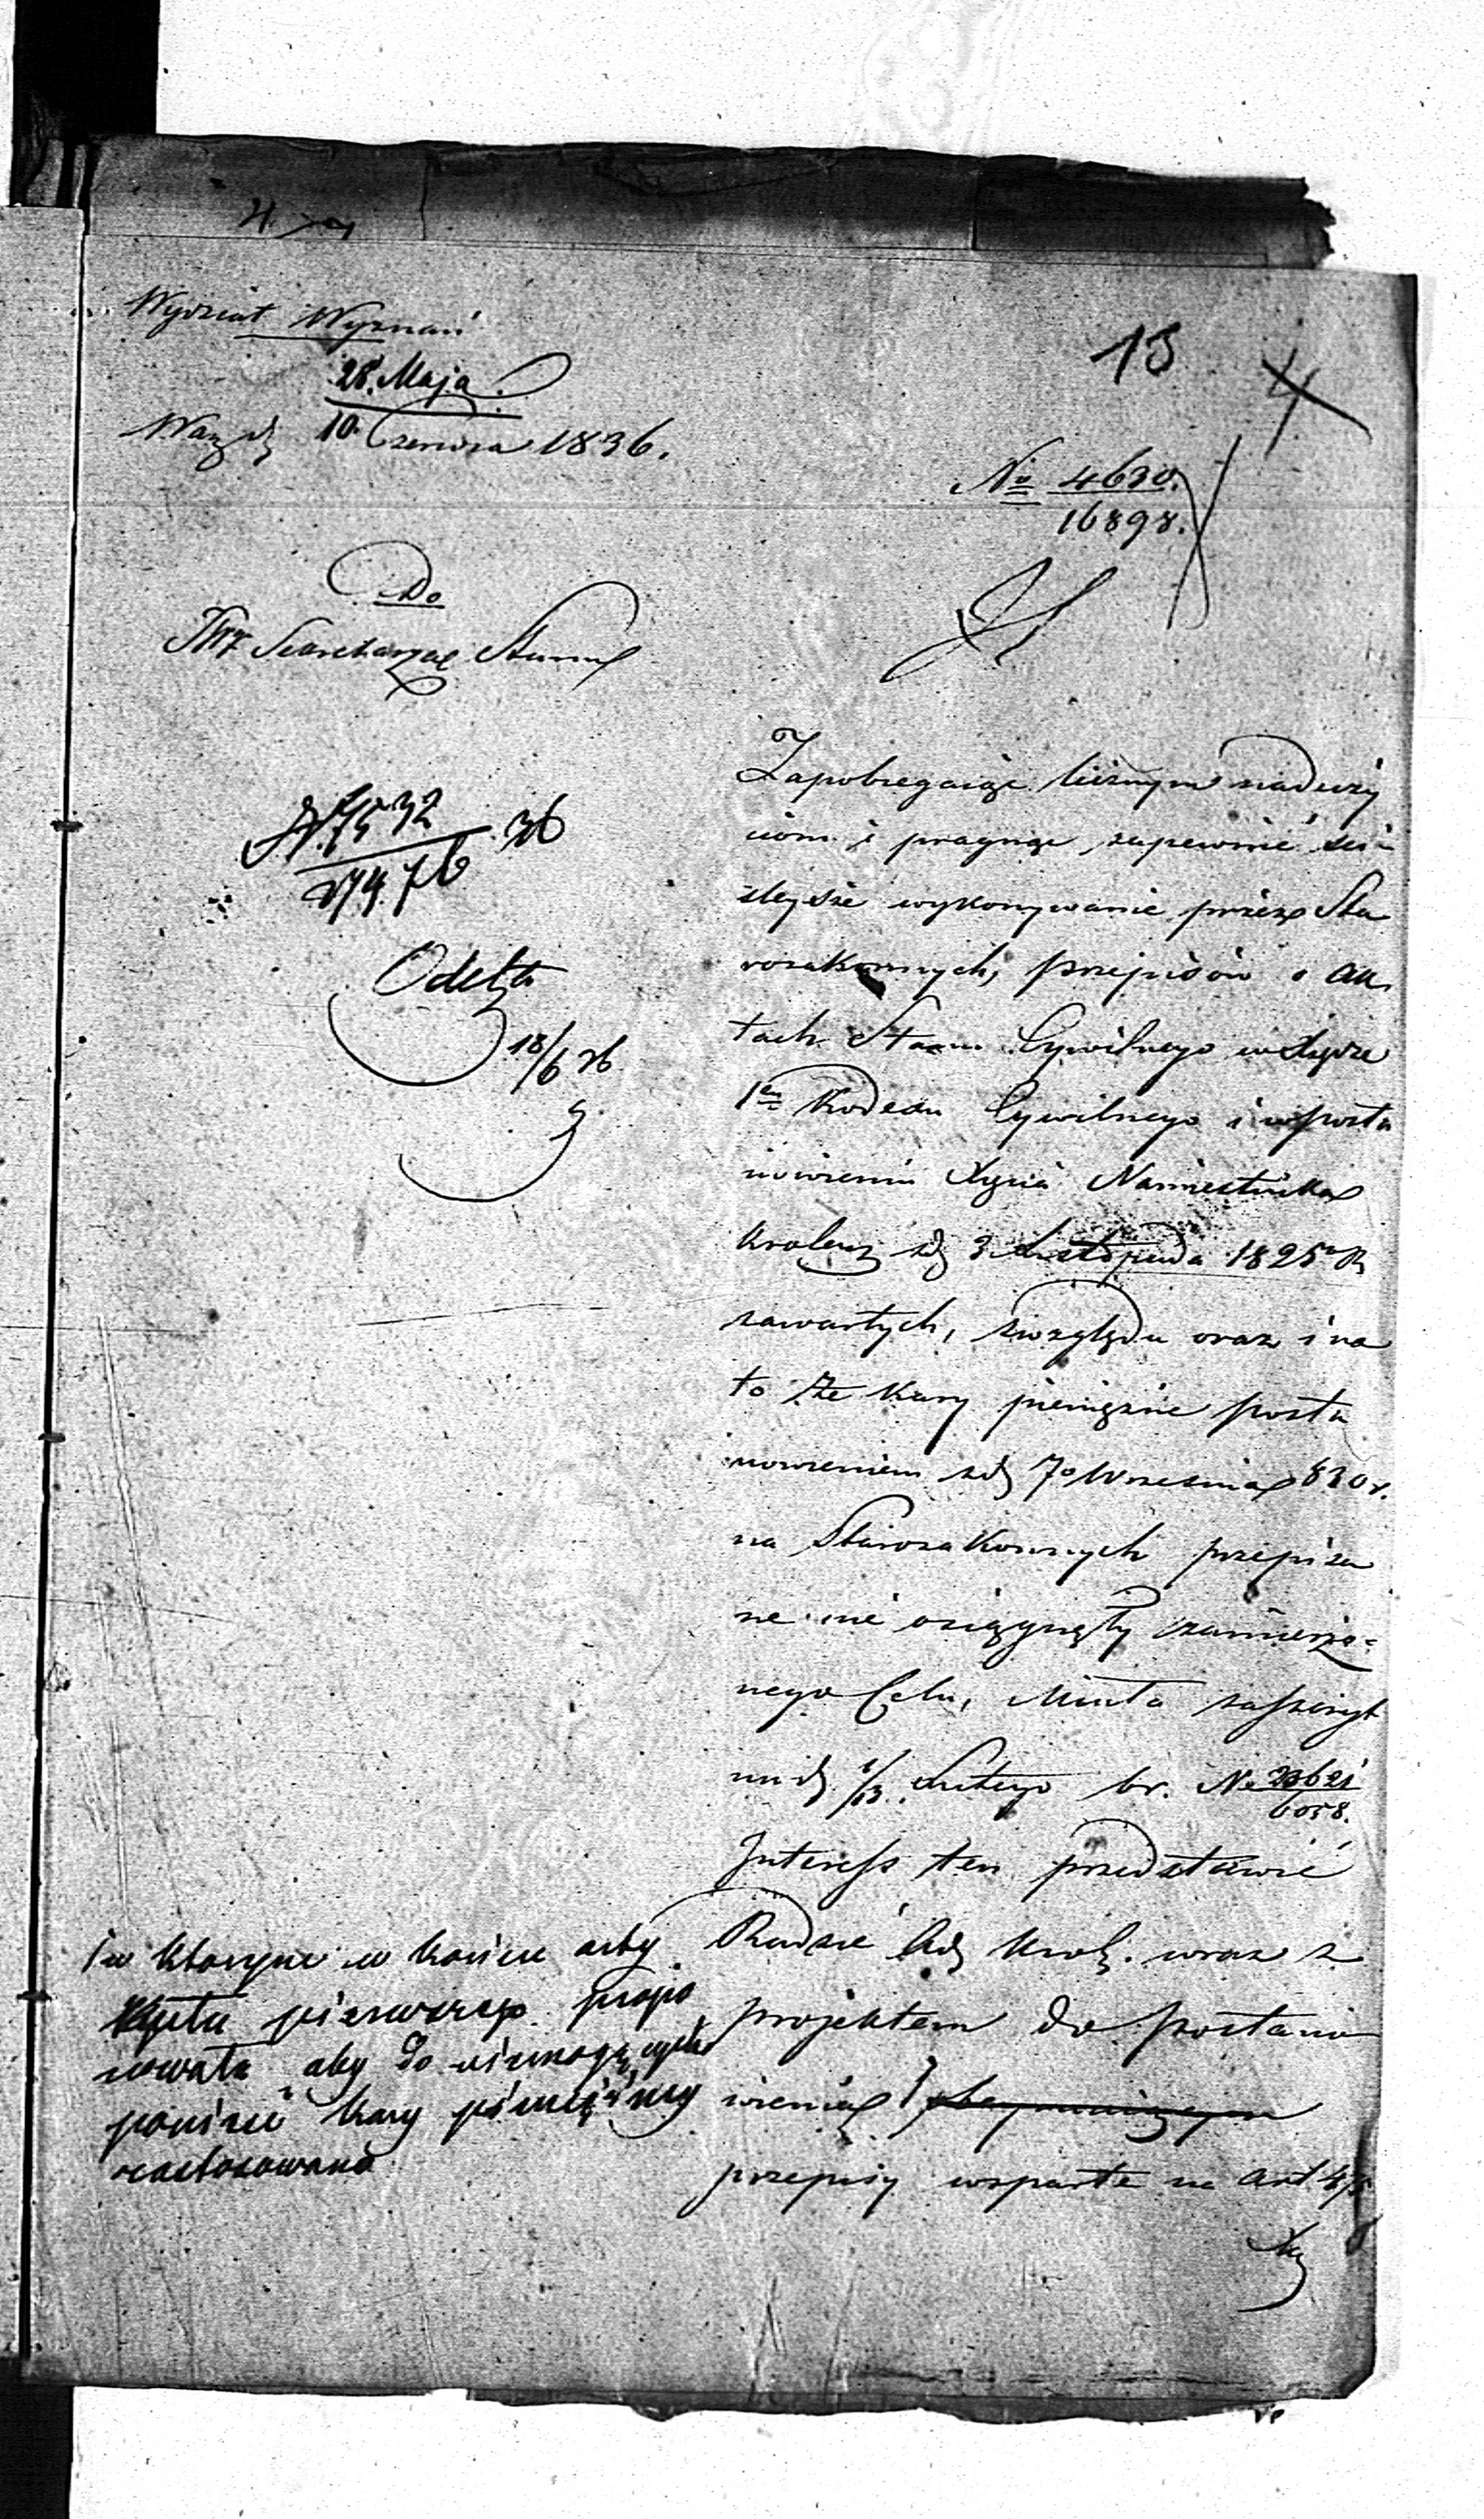 Wydział Wyznań
13
28. Maja
War d 10 Czerwca 1836.
No 4630.
16898.
Do
JWz Secretarza Stanu
Zapobiegaiąc licznym naduży
ciom i pragnąc zapewnić ści=
ślejsze wykonywanie przez Sta
rozakonnych, przepisów o ak
tach Stanu Cywilnego w Xiędze
1ey Kodexu Cywilnego i w posta
nowieniu Xięcia Namiestnika
Krolew z d 3 Listopada 1825 R
zawartych, zwzględu oraz i na
to że kary pieniężne posta
nowieniem z d 7o Września 830 r.
na Starozakonnych przepisa
ne nie osiągnęły zamierzo=
nego Celu, miała zaszczyt
un d 1/13 Lutego br. No 23621
6058.
Interess ten przedstawić
Radzie Adm Krol. wraz z
projektem do postano
wienia
przepisy wsparte na art 4
7532
36
174.76
Odebr
18/6 36
w którym w końcu aby
pierwszego propo
nowała aby do niemogących
ponieść kary pieniężnej
zastosowano